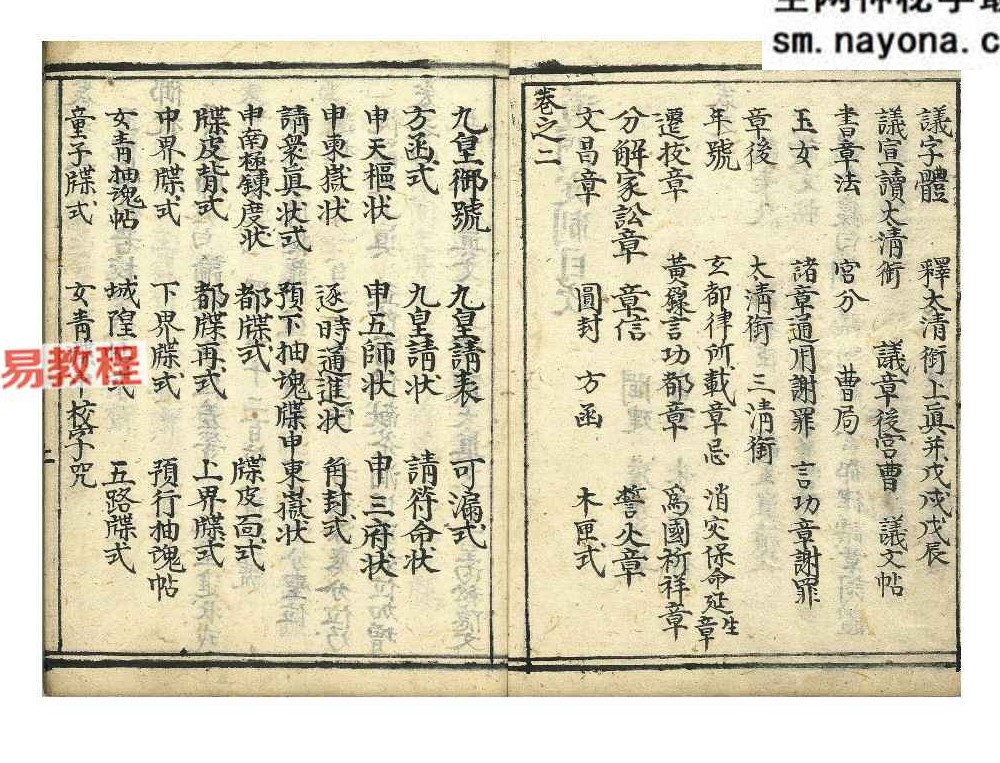 sm.nayona.c
議字體 釋太清銜上眞并戊戌戊辰
議宣讀太清銜 議章後宮曹 議文帖
書章法 宮分 曹局
玉女 諸章通用謝罪 言功章謝罪
章後 太清銜 三清銜
年號 玄都律所載章忌 消灾保命延生章
遷拔章 黃籙言功都章 為國祈祥章
分解冢訟章 章信 誓火章
文昌章 圓封 方函 木匣式
卷之二
九皇御號 九皇請表 可漏式
方函式 九皇請状 請符命状
申天樞状 申五師状 申三府状
申東嶽状 逐時通進状 角封式
請衆眞状式 預下抽魂牒申東嶽状
申南極鍊度状 都牒式 牒皮面式
牒皮背式 都牒再式 上界牒式
中界牒式 下界牒式 預行抽魂帖
女青抽魂帖 城隍 式 五路牒式
童子牒式 女青 校字咒
二
易教程